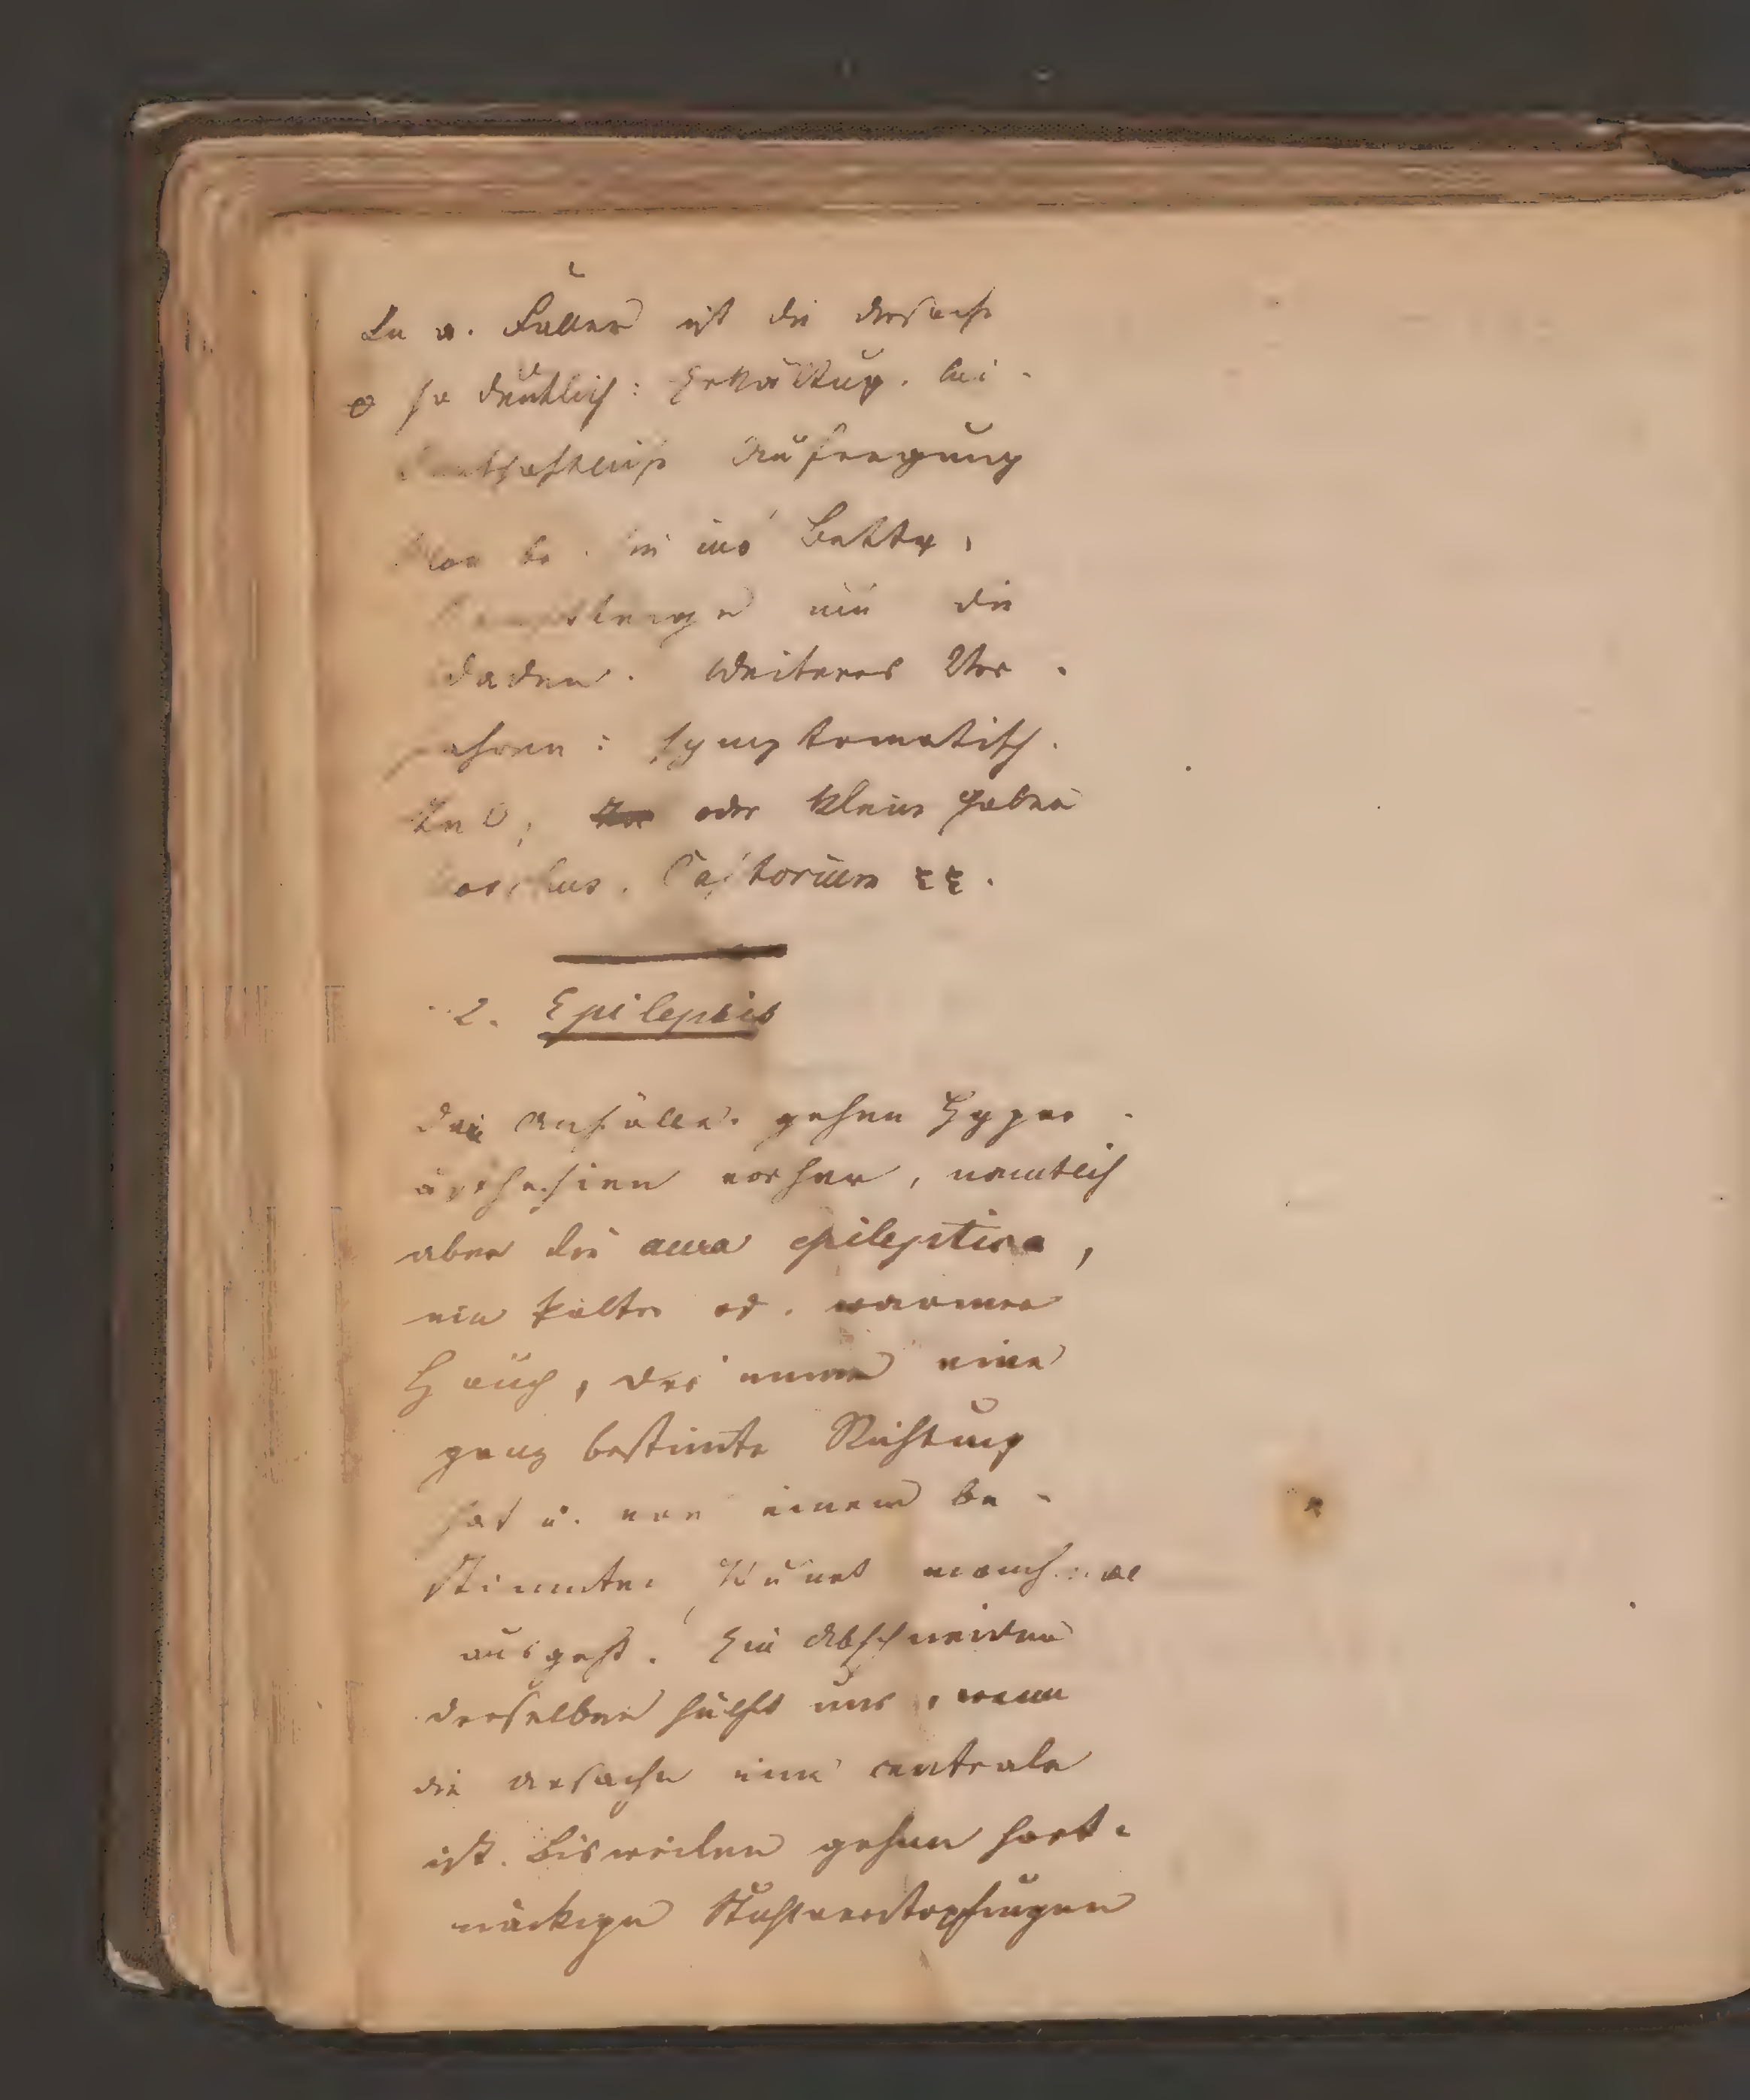 In a. Fällen ist die Ursache
so deutlich: Erkältung. lei-
Aufregung
ins Bette,
um die
Waden. Weiteres Ver-
fahren: symptomatisch.
oder kleine Gaben
Castorium
2. Epilepsie
Den Anfällen gehen Hyper-
ästhesien vorher, namtlich
aber die aura epileptica,
ein kalter od. warmer
Hauch, der immer eine
ganz bestimte Richtung
hat u. von einem be-
stimmten Punct manchmal
ausgeht. Ein Abschneiden
derselben hülfft nur, wenn
die Ursache eine centrale
ist. Bisweilen gehen hart-
näckige Stuhlverstopfungen